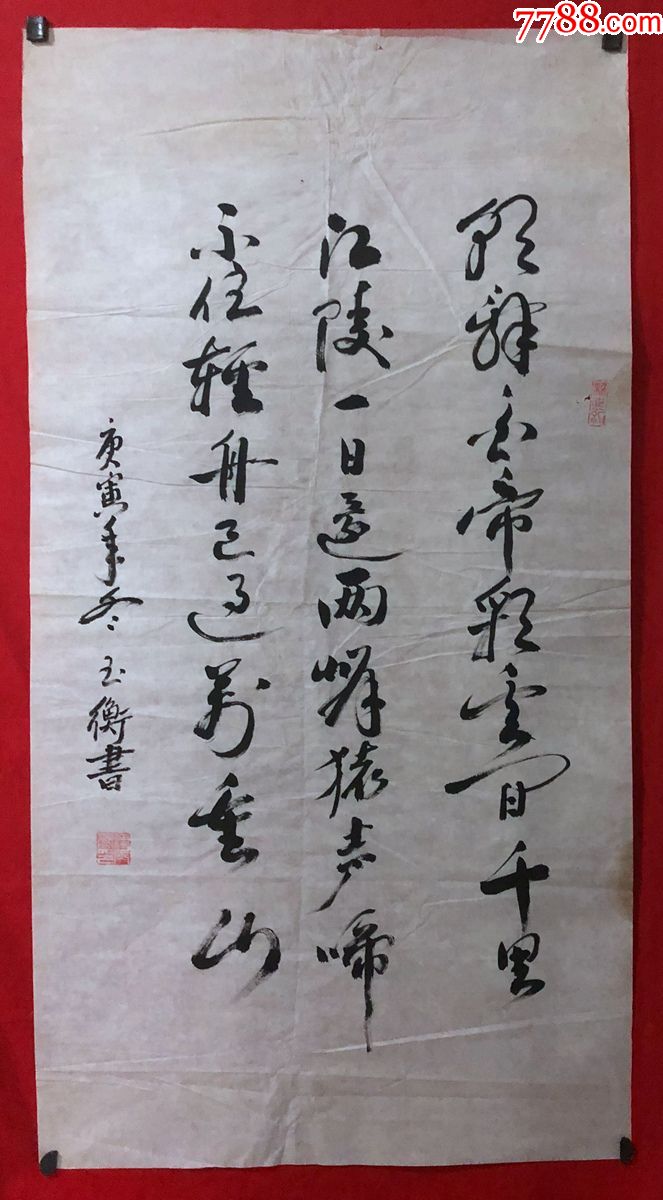 7788.com
朝辞白帝彩雲间千里
江陵一日還两岸猿声啼
不住輕舟已過萬重山
庚寅年冬玉衡書